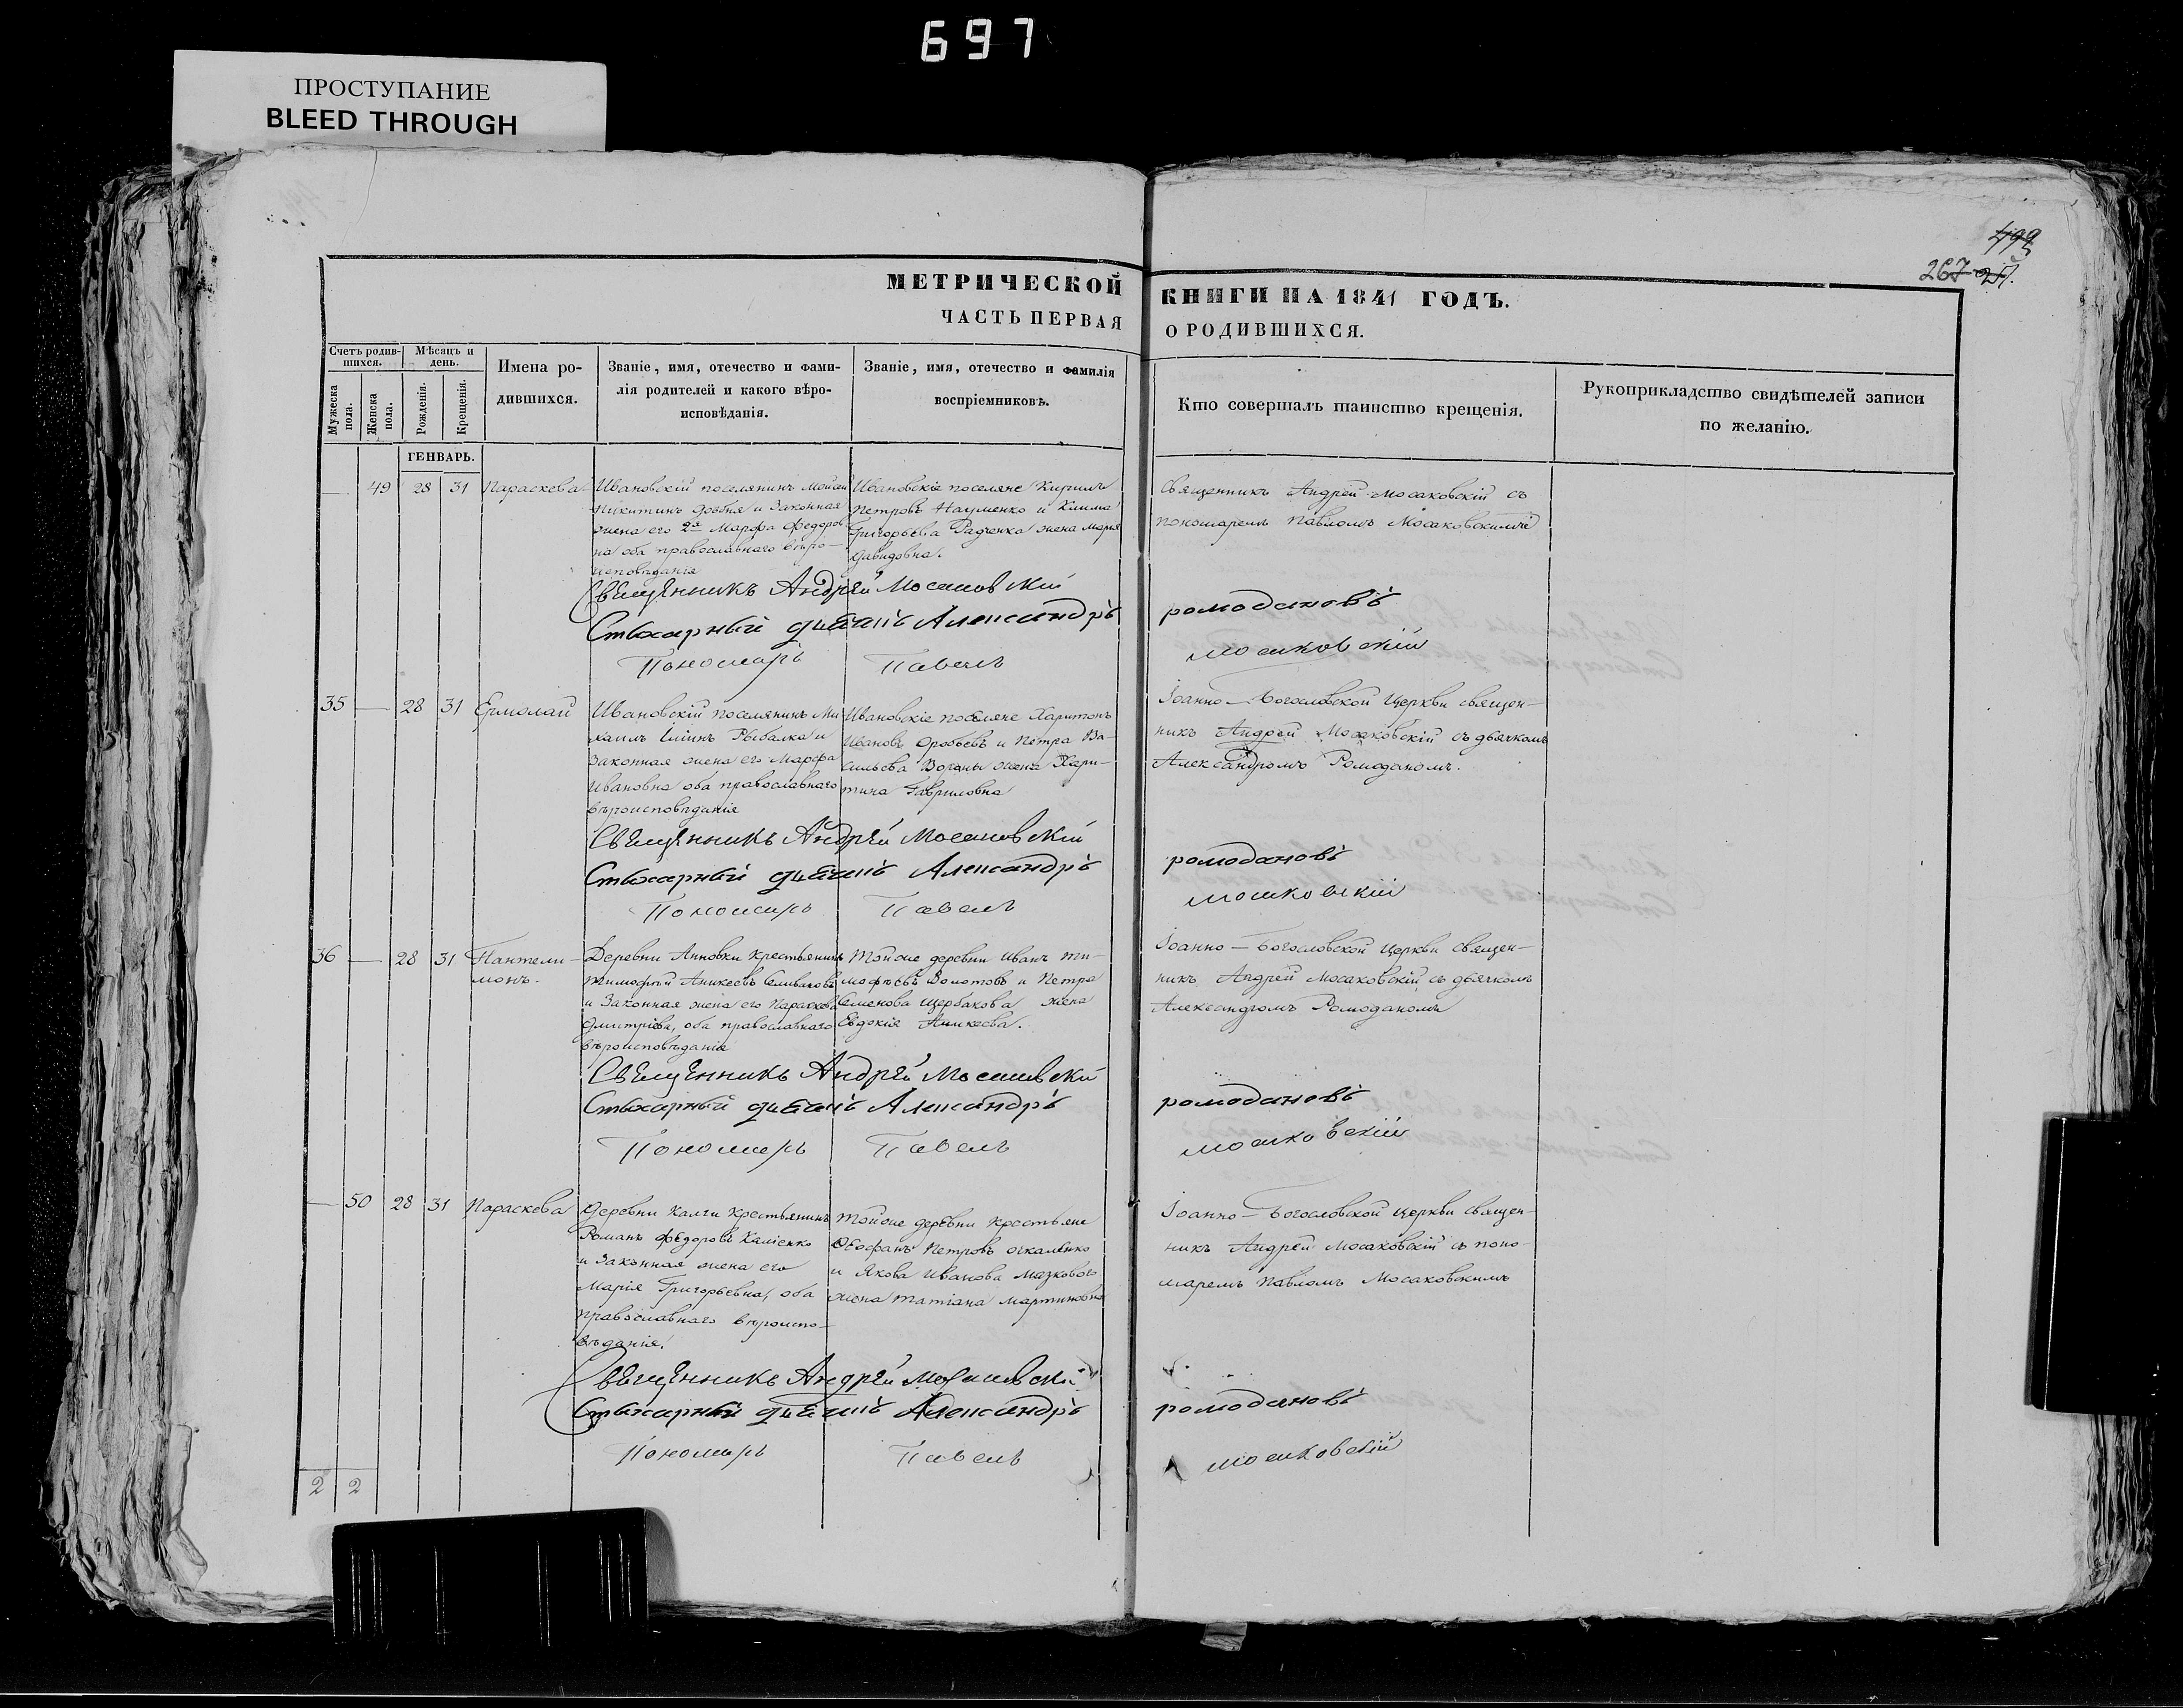 697
ПРОСТУПАНИЕ
BLEED THROUGH
499
267 217.
МЕТРИЧЕСКОЙ КНИГИ НА 1841 ГОДЪ.
ЧАСТЬ ПЕРВАЯ О РОДИВШИХСЯ.
Счетъ родив-
шихся.
Мужеска
пола.
Женска
пола.
Мѣсяцъ и
день.
Рожденія.
Крещенія.
Имена ро-
дившихся.
Званіе, имя, отечество и фами-
лія родителей и какого вѣро-
исповѣданія.
Званіе, имя, отечество и фамилія
воспріемниковъ.
Кто совершалъ таинство крещенія.
Рукоприкладство свидѣтелей записи
по желанію.
ГЕНВАРЬ.
— 49 28 31 Параскева
Ивановскій поселянинъ Мойсей
Никитинъ Довбня и законная
жена его 2я Марфа Федоров
на оба православнаго вѣро-
исповѣданія
Ивановскіе поселяне Кирилъ
Петровъ Науменко и Клима
Григорьева Радченка жена Марія
Давидовна.
Священникъ Андрей Мосаковскій съ
пономаремъ Павломъ Мосаковскимъ
Священникъ Андрей Мосаковскій
Стихарный дьячокъ Александръ ромодановъ
Пономарь Павелъ Мосаковскій
35 — 28 31 Ермолай
Ивановскій поселянинъ Ми
хаилъ Ильинъ Рыбалка и
законная жена его Марфа
Ивановна оба православнаго
вѣроисповѣданія
Ивановскіе поселяне Харитонъ
Ивановъ Оробьевъ и Петра Ва-
сильева жена Хари-
тина Гавриловна
Іоанно-Богословской Церкви священ-
никъ Андрей Мосаковскій съ дьячкомъ
Александромъ Ромоданомъ.
Священникъ Андрей Мосаковскій
Стихарный дьячокъ Александръ ромодановъ
Пономарь Павелъ Мосаковскій
36 — 28 31 Пантели-
монъ.
Деревни Анновки крестьянинъ
Тимофей Аникеевъ Селивановъ
и законная жена его Параскева
Дмитріева, оба православнаго
вѣроисповѣданія
Тойже деревни Иванъ Ти-
мофѣевъ Долотовъ и Петра
Семенова Щербакова жена
Евдокія Аникеева.
Іоанно-Богословской Церкви священ-
никъ Андрей Мосаковскій съ дьячкомъ
Александромъ Ромоданомъ
Священникъ Андрей Мосаковскій
Стихарный дьячокъ Александръ ромодановъ
Пономарь Павелъ Мосаковскій
— 50 28 31 Параскева
Деревни крестьянинъ
Романъ Федоровъ
и законная жена его
Марія Григорьевна, оба
православнаго вѣроиспо-
вѣданія.
Тойже деревни крестьяне
Ѳеофанъ Петровъ
и Якова Иванова
жена Татіана Мартиновна
Іоанно-Богословской Церкви священ-
никъ Андрей Мосаковскій съ поно-
маремъ Павломъ Мосаковскимъ
Священникъ Андрей Мосаковскій
Стихарный дьячокъ Александръ ромодановъ
Пономарь Павелъ Мосаковскій
2 2